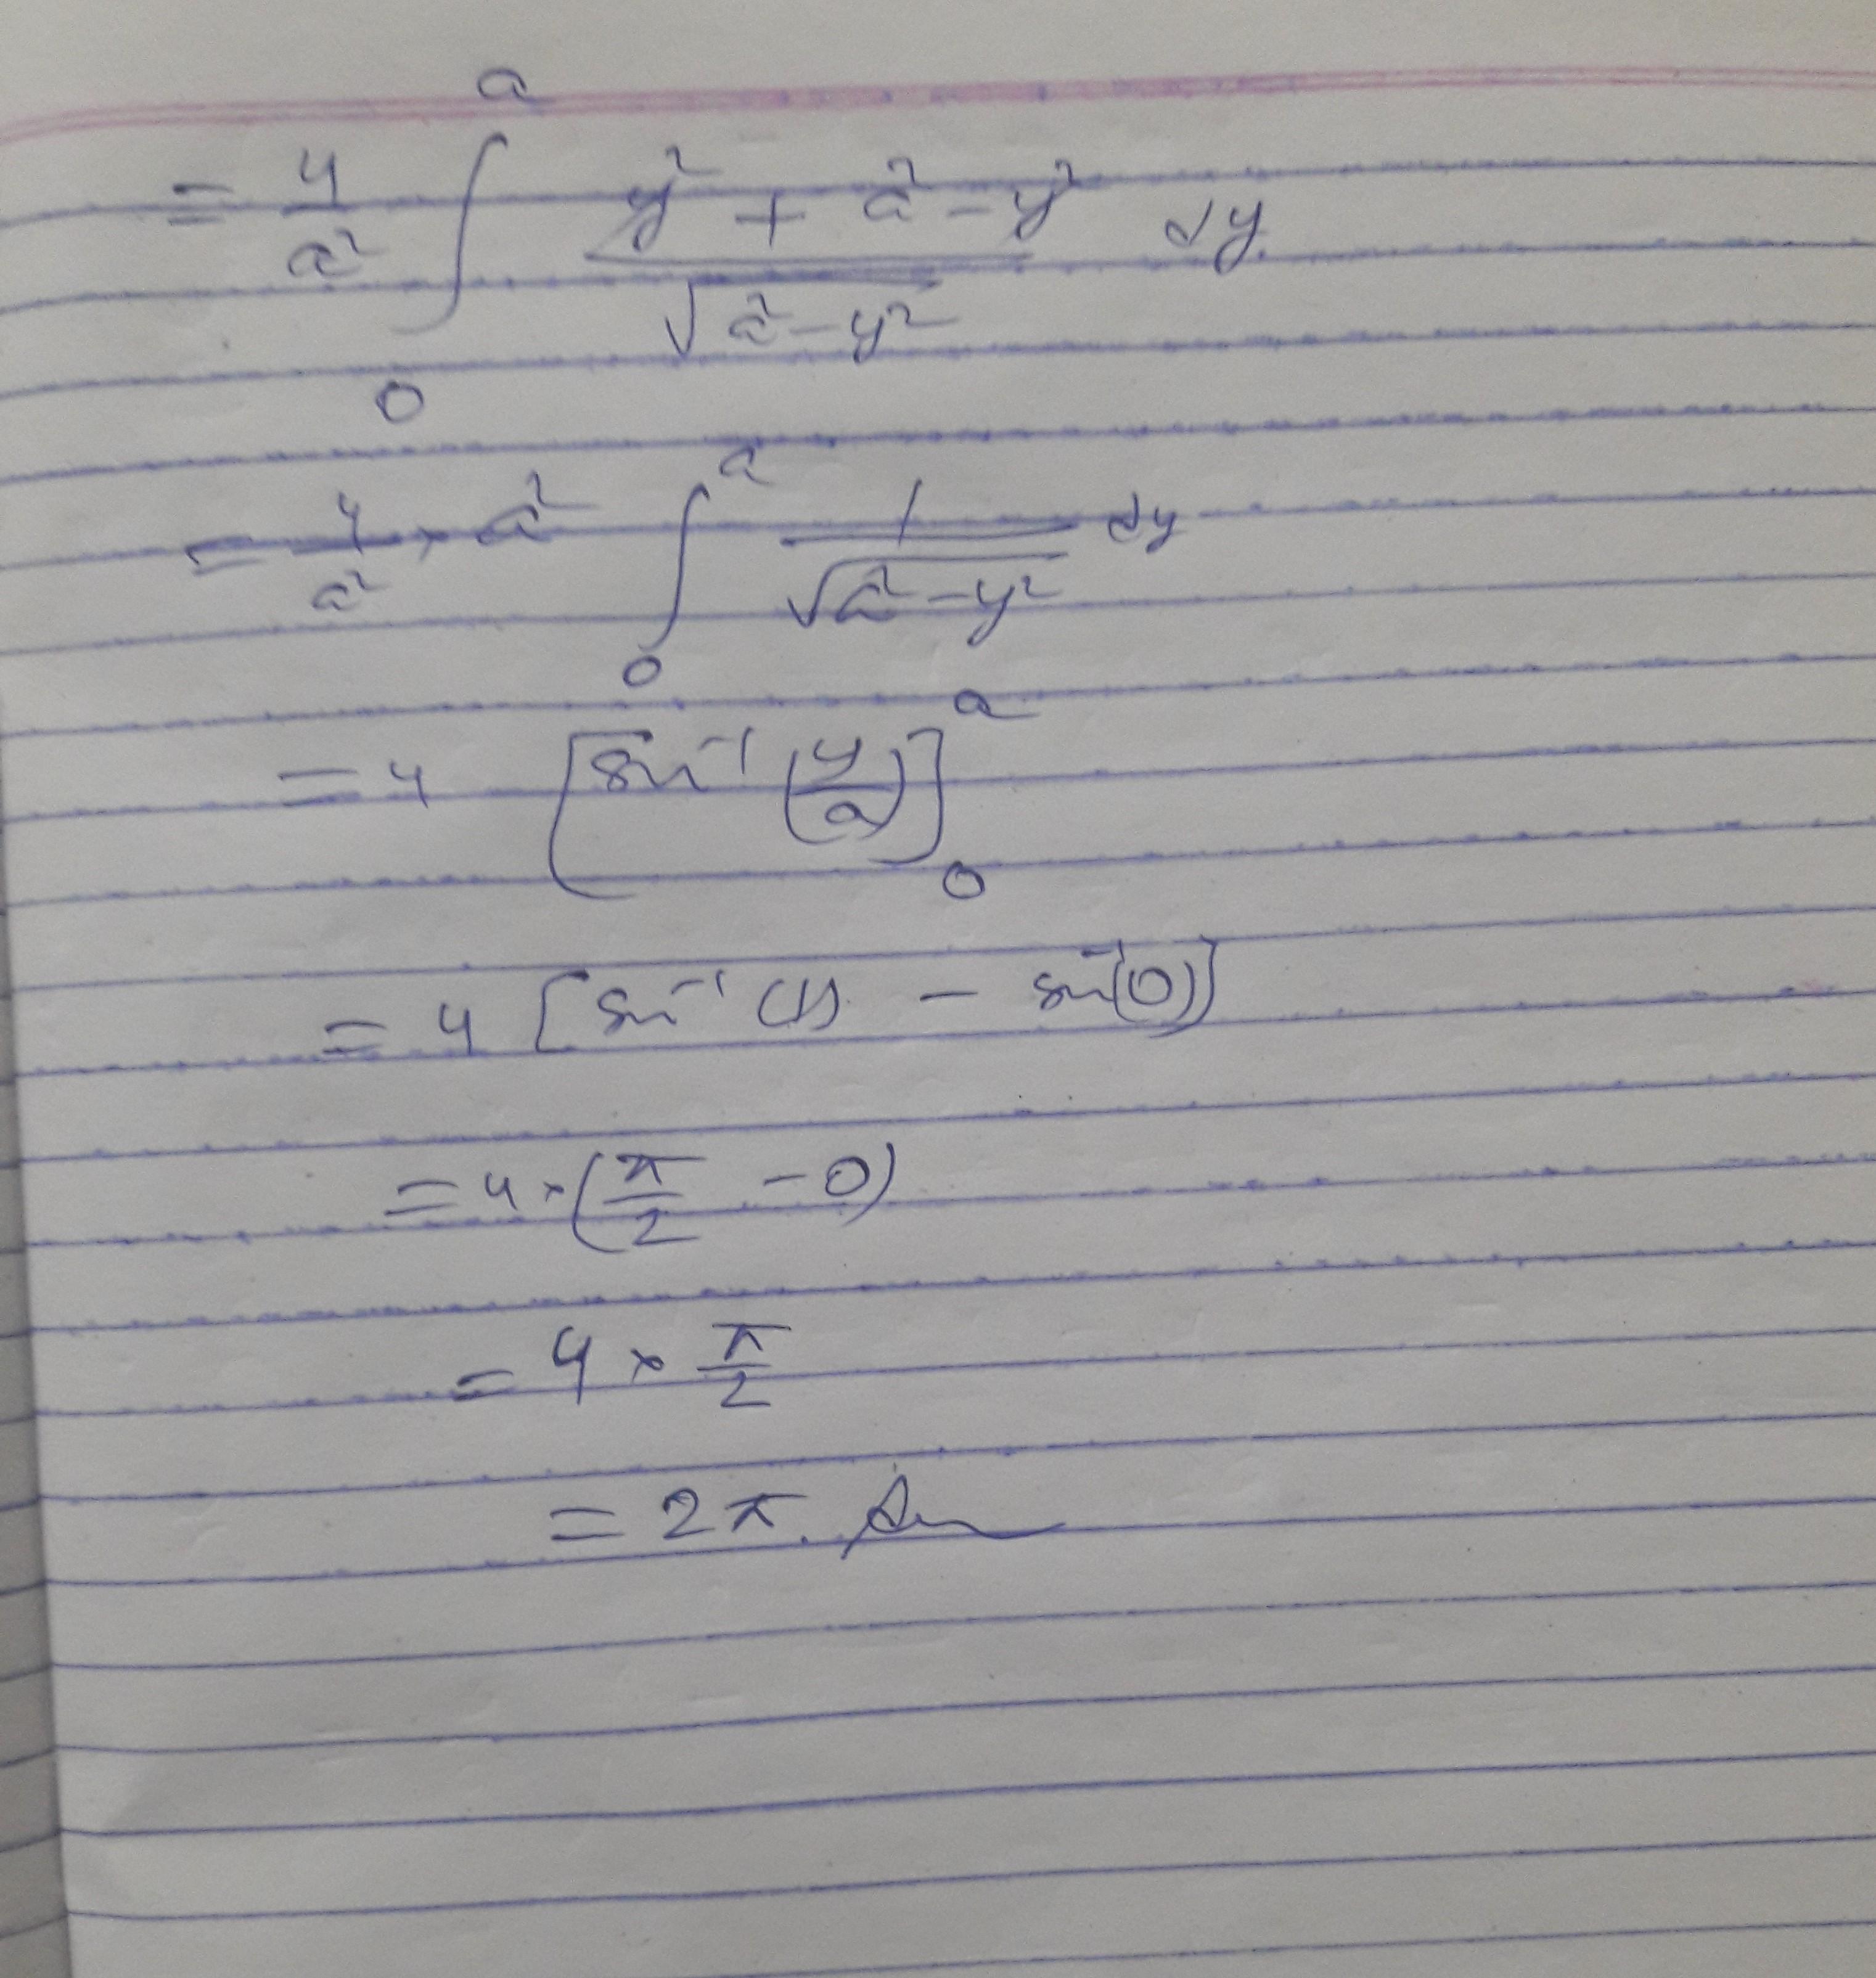 = 4/a² ∫₀ᵃ (y² + a² - y²)/√(a² - y²) dy.
= 4/a² × a² ∫₀ᵃ 1/√(a² - y²) dy
= 4 [sin⁻¹ (y/a)]₀ᵃ
= 4 [sin⁻¹ (1) - sin⁻¹(0)]
= 4 × (π/2 - 0)
= 4 × π/2
= 2π.